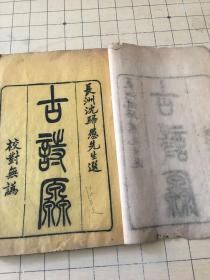 長洲沈歸愚先生選
古詩源
校對無譌